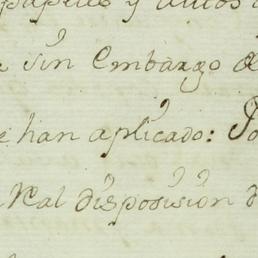 papeles y autos
sin embargo de
han aplicado:
Real disposision